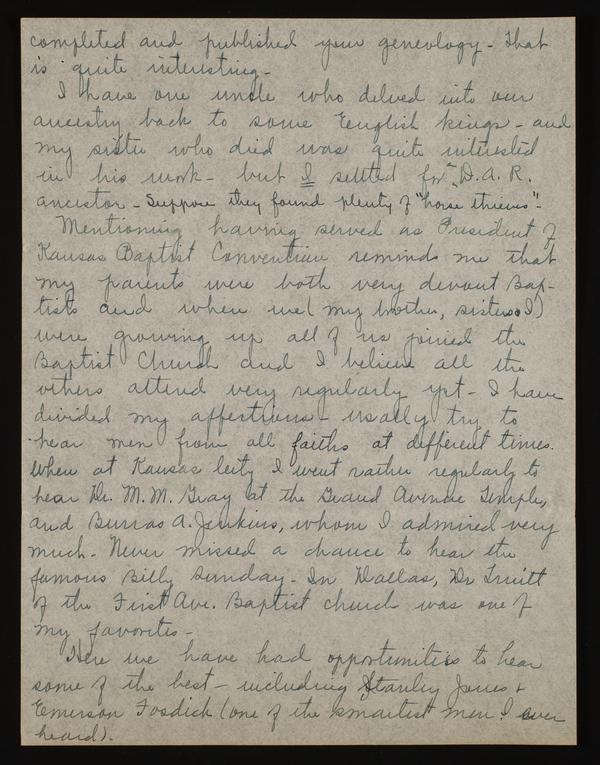 completed and published your geneology - That
is quite interesting -
I have one uncle who delved into our
ancestry back to some English kings - and
my sister who died was quite interested
in his work - but I settled for D.A.R.
ancestor - Suppose they found plenty of "horse thieves" -
Mentioning having served as President of
Kansas Baptist Convention reminds me that
my parents were both very devout Bap-
tists and when we (my brother, sisters & I)
were growing up all of us joined the
Baptist Church and I believe all the
others attend very regularly yet - I have
divided my affections - usually try to
hear men from all faiths at different times.
When at Kansas City I went rather regularly to
hear Dr. M. M. Gray at the Grand Avenue Temple,
and Burras A. Jenkins, whom I admired very
much - Never missed a chance to hear the
famous Billy Sunday - In Dallas, Dr Truitt
of the First Ave. Baptist church was one of
my favorites -
Here we have had opportunities to hear
some of the best - including Stanley Jones +
Emerson Fosdick (one of the smartest men I ever
heard).